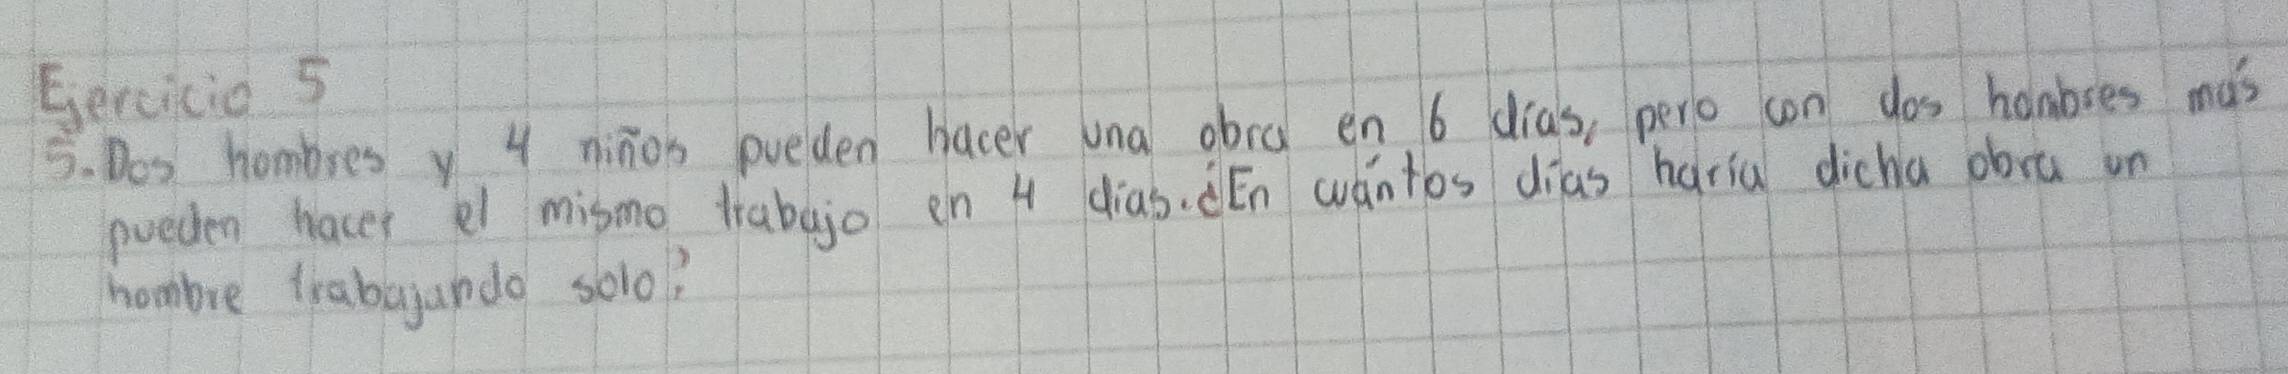 Ejercicio 5
5. Dos hombres y 4 niños pueden hacer una obra en 6 dias, pero con dos hombres más
pueden hacer el mismo trabajo en 4 dias. ¿En cuántos dias haria dicha obra un
hombre trabajando solo?